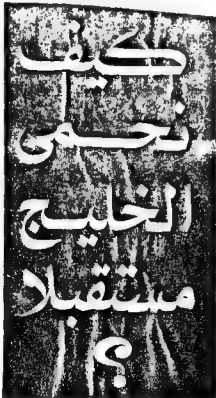 كيف
نحمى
الخليج
مستقبلا
؟